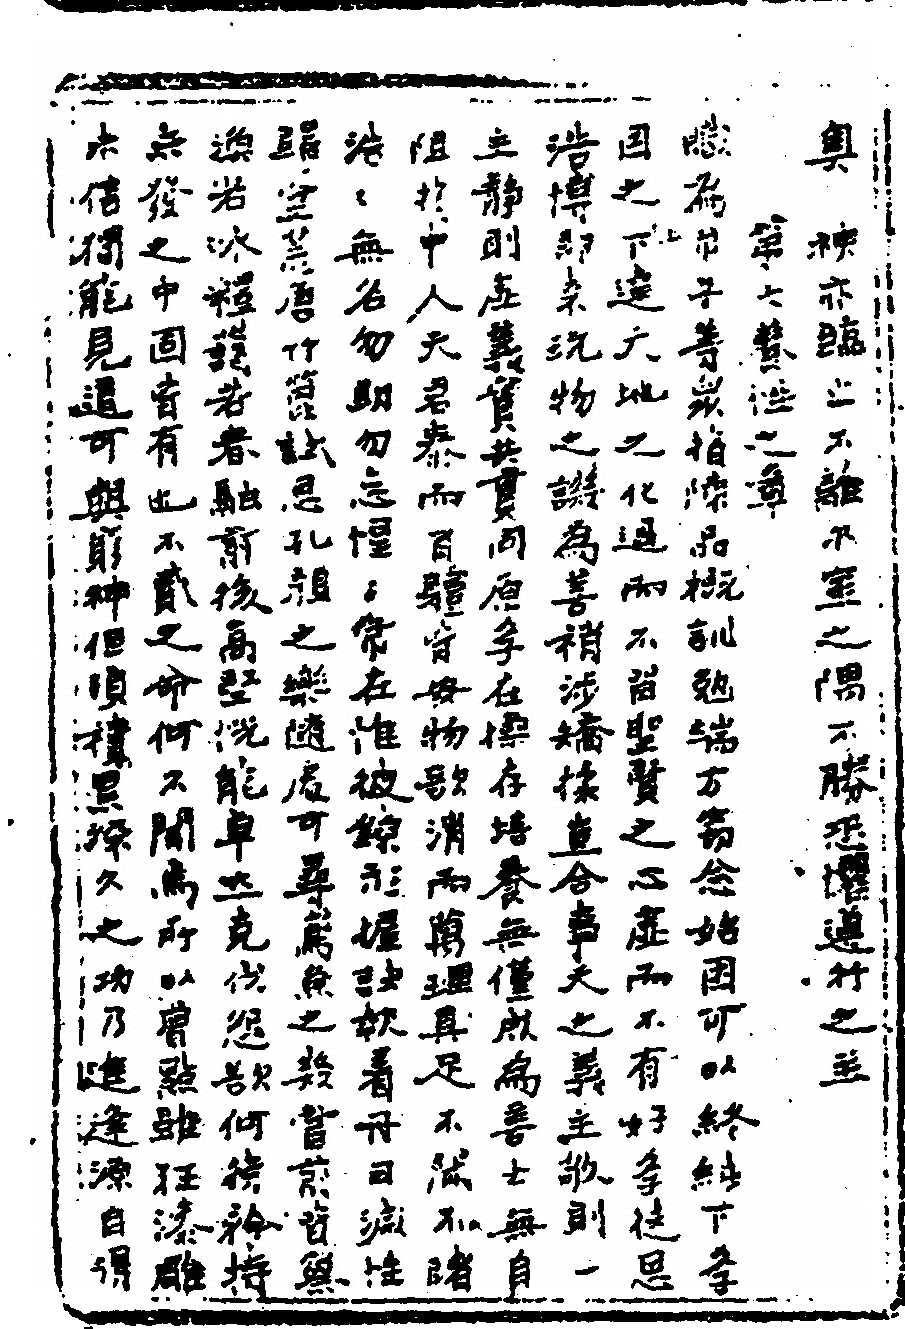 奧 神亦臨亡不離不寐之隅不勝恐懼遵行之至
第七慧性之章
為弟子等眾指陳品概訓勉端方芻念始困可以終結下學
因之下達广地之化過而不留聖賢之心虛而不有好學從思
浩博卽來玩物之譏為善稍涉矯揉豈合事天之義主敬則一
主靜則虛義實共貫同原學在操存培養無僅所為善士無自
阻於中人天君泰而百體皆安物欲消而萬理具足不聞不睹
浩〻無名勿助勿忘惺〻常在惟彼鍊形握訣欲着丹田滅性
歸空荒唐竹箆試思孔顏之樂隨處可尋鳶魚之發當前皆與
渙若冰釋說若者融前後高堅恍能卓立克伐怨欲何待矜持
未發之中固皆有此不貳之命何不聞焉所以曾點雖狂漆雕
未信獨能見道可與窮神但須積累深久之功乃進逢源自得